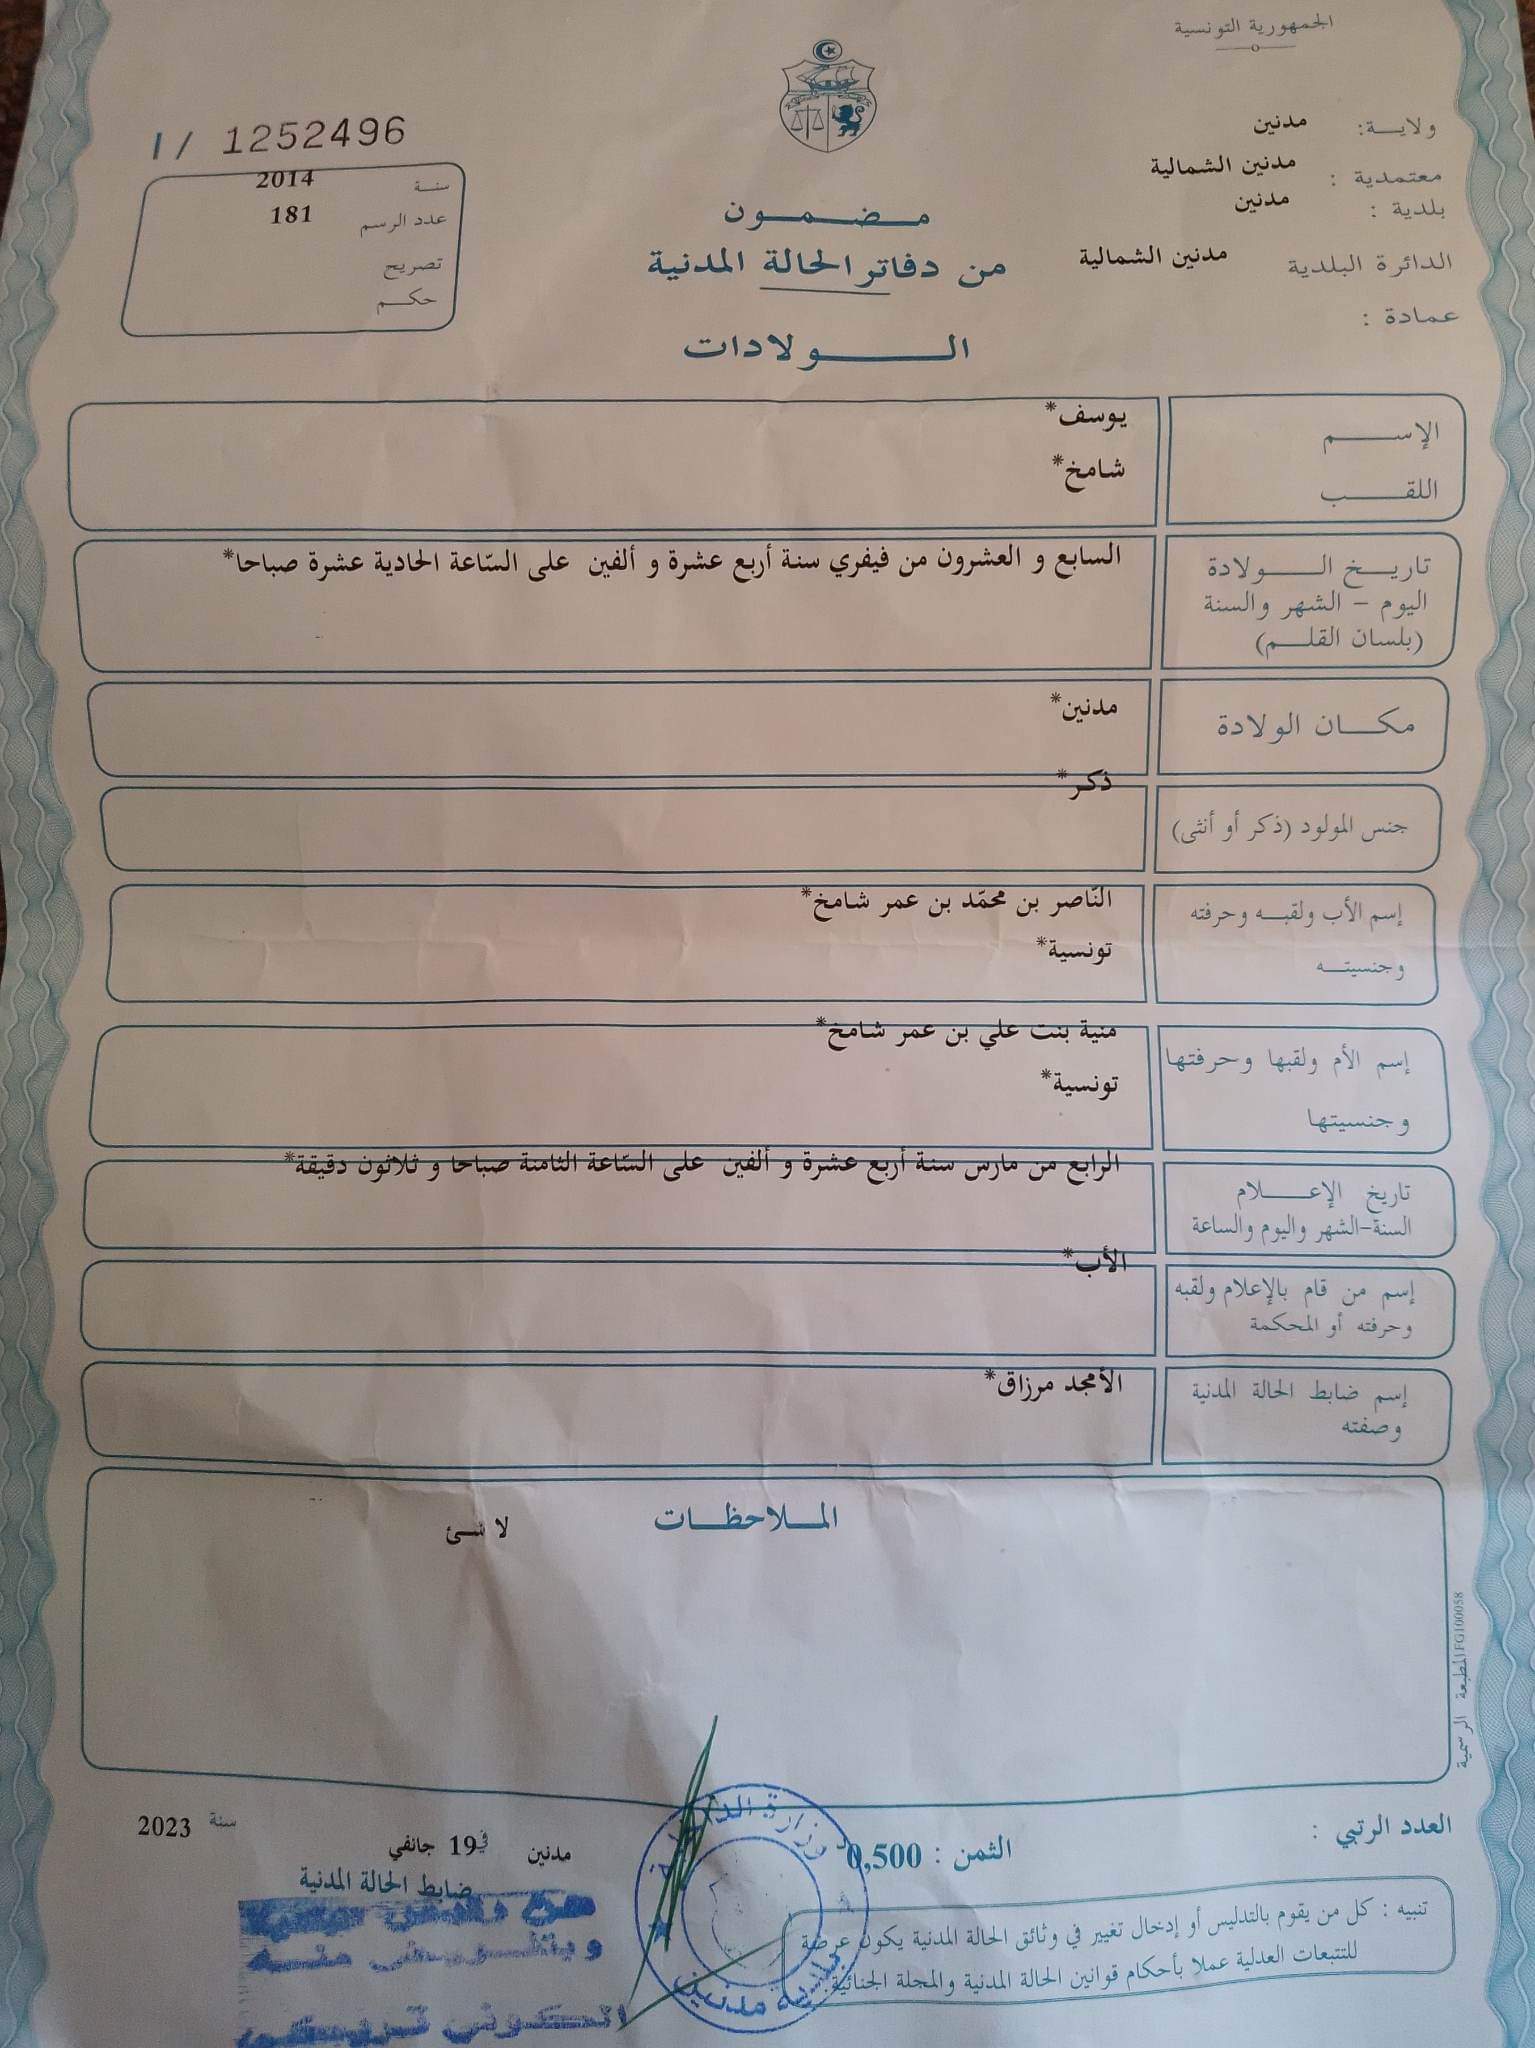 الجمهورية التونسية
ولايـــة: مدنين
معتمدية : مدنين الشمالية
بلدية : مدنين
الدائرة البلدية مدنين الشمالية
عمادة :
1/ 1252496
سنة 2014
عدد الرسم 181
تصريح
حكـــم
مـــضـــمـــون
من دفاتر الحالة المدنية
الـــــولادات
الإســـــم يوسف*
اللقـــــب شامخ*
تاريـــخ الـــــولادة السابع و العشرون من فيفري سنة أربع عشرة و ألفين على السّاعة الحادية عشرة صباحا*
اليوم – الشهر والسنة
(بلسان القلـــم)
مكـــان الولادة مدنين*
جنس المولود (ذكر أو أنثى) ذكر*
إسم الأب ولقبـــه وحرفته النّاصر بن محمّد بن عمر شامخ*
وجنسيتـــه تونسية*
إسم الأم ولقبها وحرفتها منية بنت علي بن عمر شامخ*
وجنسيتها تونسية*
تاريخ الإعـــــلام الرابع من مارس سنة أربع عشرة و ألفين على السّاعة الثامنة صباحا و ثلاثون دقيقة*
السنة-الشهر واليوم والساعة
إسم من قام بالإعلام ولقبه الأب*
وحرفته أو المحكمة
إسم ضابط الحالة المدنية الأمجد مرزاق*
وصفته
المـــلاحظـــات
لا شئ
المطبعة الرسمية FG100058
العدد الرتبي :
الثمن : 0,500د
مدنين في 19 جانفي سنة 2023
ضابط الحالة المدنية
وبتفويض منه
وزارة الداخلية
بلدية مدنين
تنبيه : كل من يقوم بالتدليس أو إدخال تغيير في وثائق الحالة المدنية يكون عرضة
للتتبعات العدلية عملا بأحكام قوانين الحالة المدنية والمجلة الجنائية.